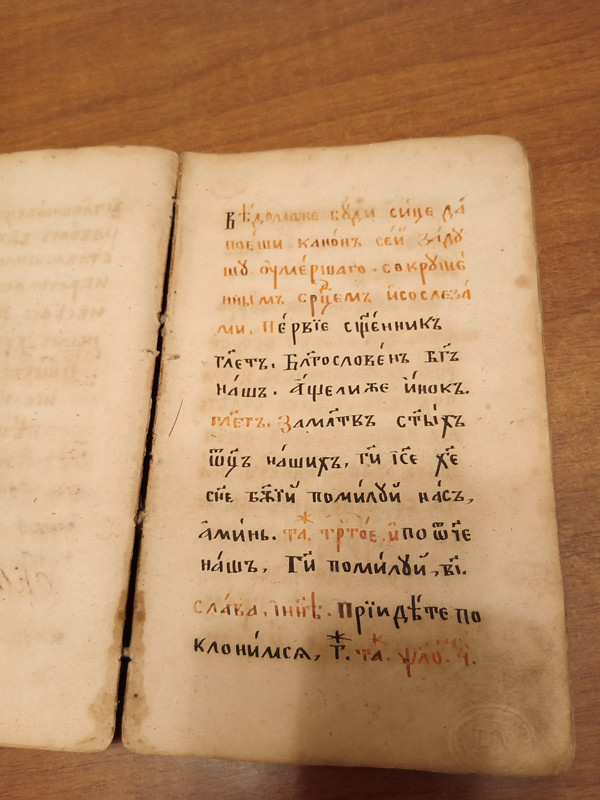 Вѣ́доможе бꙋ́ди си́це да́
пое́ши кано́нъ се́й за́дꙋ
шꙋ оу҆ме́ршаго. сокрꙋше́
ннымъ срⷣцемъ и҆сослеза́
ми. Пе́рвїе сщ҃е́нникъ
гл҃етъ. Бл҃гослове́нъ бг҃ъ
на́шъ. А҆щелиже и҆́нокъ.
гл҃етъ. Замл҃твъ ст҃ы́хъ
ѿц҃ъ на́шихъ, гд҃и і҆с҃е хр҃е
сн҃е бж҃їй поми́лꙋй на́съ,
а҆ми́нь. та. трⷭ҇то́е. и҆ по ѿч҃е
на́шъ, Гд҃и поми́лꙋй, в҃і.
сла́ва, і҆нн҃ѣ. Прїидѣ́те по
клони́мсѧ, г҃. та. ѱало. ч҃.